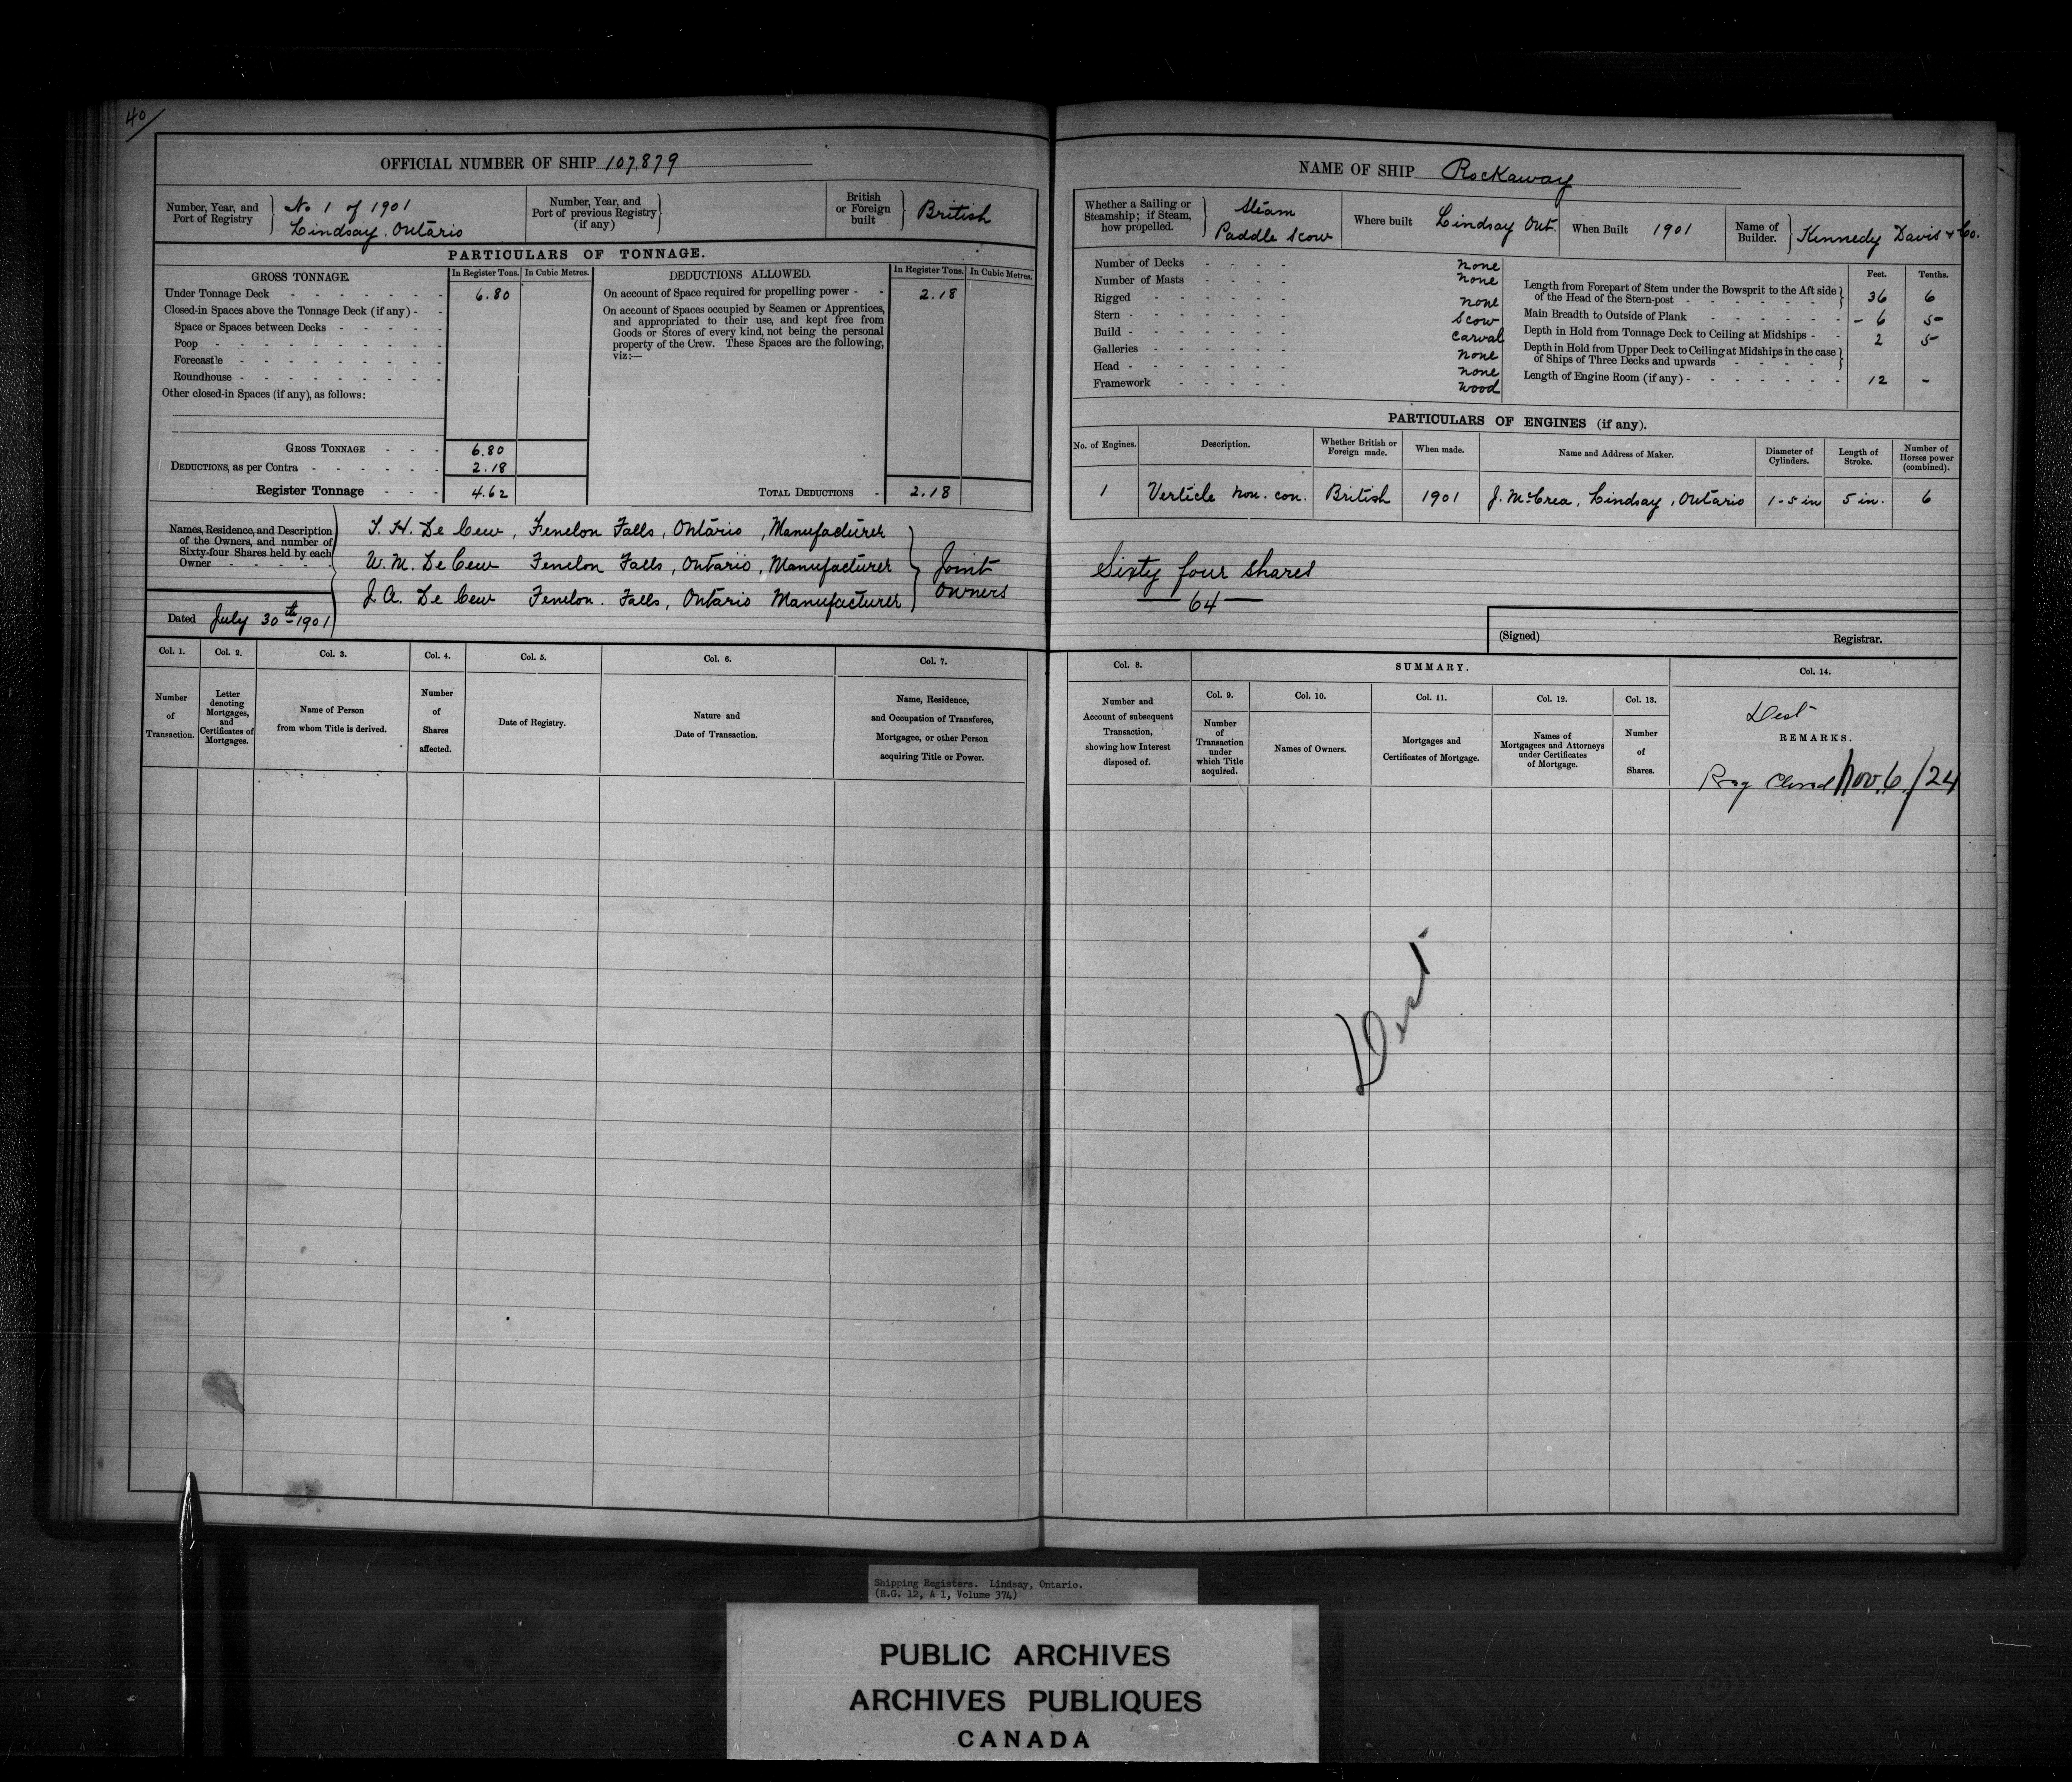 40/
OFFICIAL NUMBER OF SHIP 107.879
Number, Year, and Port of Registry
No 1 of 1901
Lindsay. Ontario
Number, Year, and Port of previous Registry (if any)
British or Foreign built
British
PARTICULARS OF TONNAGE.
GROSS TONNAGE. In Register Tons. In Cubic Metres. DEDUCTIONS ALLOWED. In Register Tons. In Cubic Metres.
Under Tonnage Deck - - - - - - - 6.80
Closed-in Spaces above the Tonnage Deck (if any) - -
Space or Spaces between Decks - - - - -
Poop - - - - - - - - -
Forecastle - - - - - - - -
Roundhouse - - - - - - - -
Other closed-in Spaces (if any), as follows:
GROSS TONNAGE - - - 6.80
DEDUCTIONS, as per Contra - - - - - - 2.18
Register Tonnage - - - 4.62
On account of Space required for propelling power - - 2.18
On account of Spaces occupied by Seamen or Apprentices,
and appropriated to their use, and kept free from
Goods or Stores of every kind, not being the personal
property of the Crew. These Spaces are the following,
viz:—
TOTAL DEDUCTIONS - 2.18
Names, Residence, and Description
of the Owners, and number of
Sixty-four Shares held by each
Owner - - - - -
T. H. De Cew, Fenelon Falls, Ontario, Manufacturer
W. M. De Cew Fenelon Falls, Ontario, Manufacturer
J. A. De Cew Fenelon. Falls, Ontario Manufacturer
Joint
Owners
Dated July 30th 1901
Col. 1. Col. 2. Col. 3. Col. 4. Col. 5. Col. 6. Col. 7.
Number of Transaction.
Letter denoting Mortgages, and Certificates of Mortgages.
Name of Person from whom Title is derived.
Number of Shares affected.
Date of Registry.
Nature and Date of Transaction.
Name, Residence, and Occupation of Transferee, Mortgagee, or other Person acquiring Title or Power.
NAME OF SHIP Rockaway
Whether a Sailing or Steamship; if Steam, how propelled.
Steam
Paddle Scow
Where built Lindsay Ont.
When Built 1901
Name of Builder. Kennedy Davis & Co.
Number of Decks - - - - none
Number of Masts - - - - none
Rigged - - - - - - none
Stern - - - - - - - Scow
Build - - - - - - - Carval
Galleries - - - - - - none
Head - - - - - - - none
Framework - - - - - wood
Feet. Tenths.
Length from Forepart of Stem under the Bowsprit to the Aft side
of the Head of the Stern-post - - - - - - 36 6
Main Breadth to Outside of Plank - - - - - - 6 5
Depth in Hold from Tonnage Deck to Ceiling at Midships - - 2 5
Depth in Hold from Upper Deck to Ceiling at Midships in the case
of Ships of Three Decks and upwards - - - -
Length of Engine Room (if any) - - - - - - - 12 -
PARTICULARS OF ENGINES (if any).
No. of Engines. Description. Whether British or Foreign made. When made. Name and Address of Maker. Diameter of Cylinders. Length of Stroke. Number of Horses power (combined).
1 Verticle non. con. British 1901 J. McCrea, Lindsay, Ontario 1-5 in 5 in. 6
Sixty four shares
— 64 —
(Signed) Registrar.
Col. 8. SUMMARY. Col. 14.
Col. 9. Col. 10. Col. 11. Col. 12. Col. 13.
Number and Account of subsequent Transaction, showing how Interest disposed of.
Number of Transaction under which Title acquired.
Names of Owners.
Mortgages and Certificates of Mortgage.
Names of Mortgagees and Attorneys under Certificates of Mortgage.
Number of Shares.
Dest
REMARKS.
Reg Closed Nov. 6/24
Dest
Shipping Registers. Lindsay, Ontario.
(R.G. 12, A 1, Volume 374)
PUBLIC ARCHIVES
ARCHIVES PUBLIQUES
CANADA